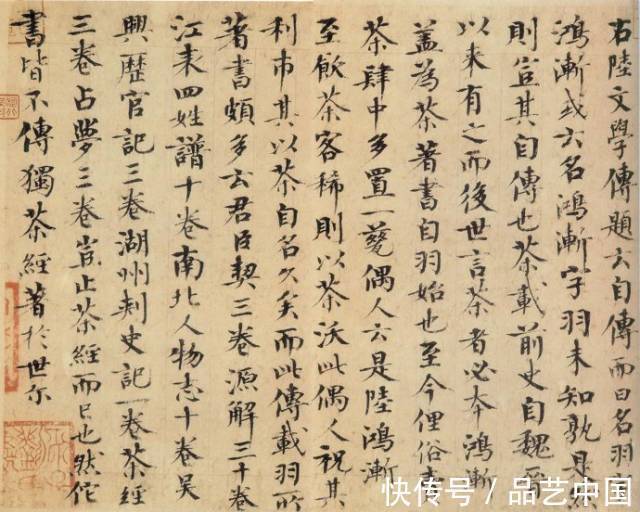 右陸文學傳題云自傳而曰名羽
鴻漸或云名鴻漸字羽未知孰是然
則豈其自傳也茶載前史自魏晉
以來有之而後世言茶者必本鴻漸
盖為茶著書自羽始也至今俚俗賣
茶肆中多置一甆偶人云是陸鴻漸
至飲茶客稀則以茶沃此偶人祝其
利市其以茶自名久矣而此傳載羽所
著書頗多云君臣契三卷源解三十卷
江表四姓譜十卷南北人物志十卷吳
興歷官記三卷湖州刺史記一卷茶經
三卷占夢三卷豈止茶經而已也然佗
書皆不傳獨茶經著於世尔
快传号 / 品艺中国